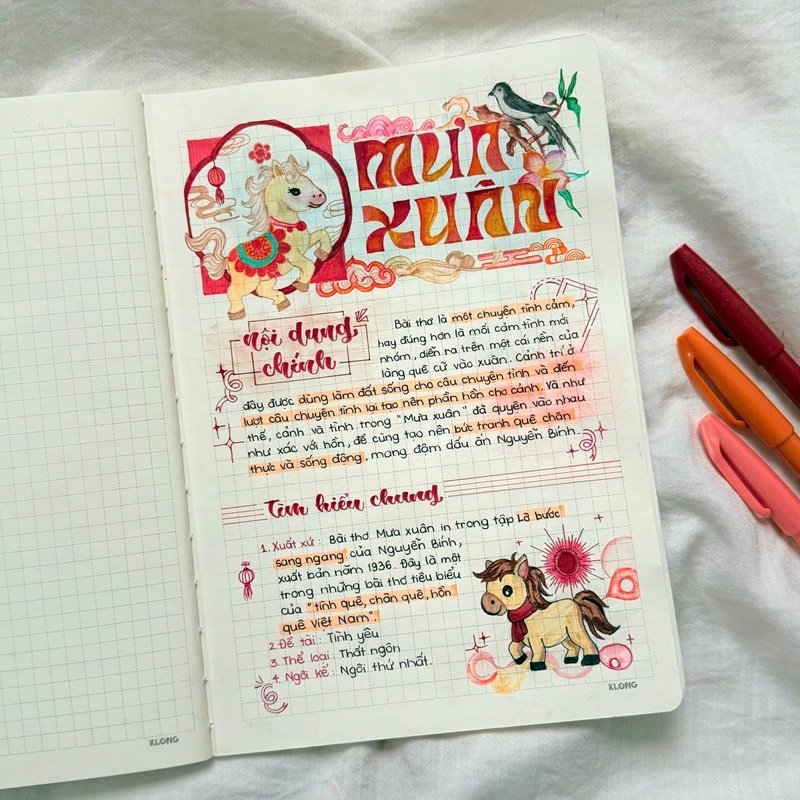 MƯA
XUÂN
nội dung
chính
Bài thơ là một chuyện tình cảm,
hay đúng hơn là mối cảm tình mới
nhóm, diễn ra trên một cái nền của
làng quê cứ vào xuân. Cảnh trí ở
đây được dùng làm đất sống cho câu chuyện tình và đến
lượt câu chuyện tình lại tạo nên phần hồn cho cảnh. Và như
thế, cảnh và tình trong "Mưa xuân" đã quyện vào nhau
như xác với hồn, để cùng tạo nên bức tranh quê chân
thực và sống động, mang đậm dấu ấn Nguyễn Bính.
Tìm hiểu chung
1. Xuất xứ: Bài thơ Mưa xuân in trong tập Lỡ bước
sang ngang của Nguyễn Bính,
xuất bản năm 1936. Đây là một
trong những bài thơ tiêu biểu
của "tình quê, chân quê, hồn
quê Việt Nam".
2. Đề tài: Tình yêu
3. Thể loại: Thất ngôn
4. Ngôi kể: Ngôi thứ nhất.
KLONG
KLONG